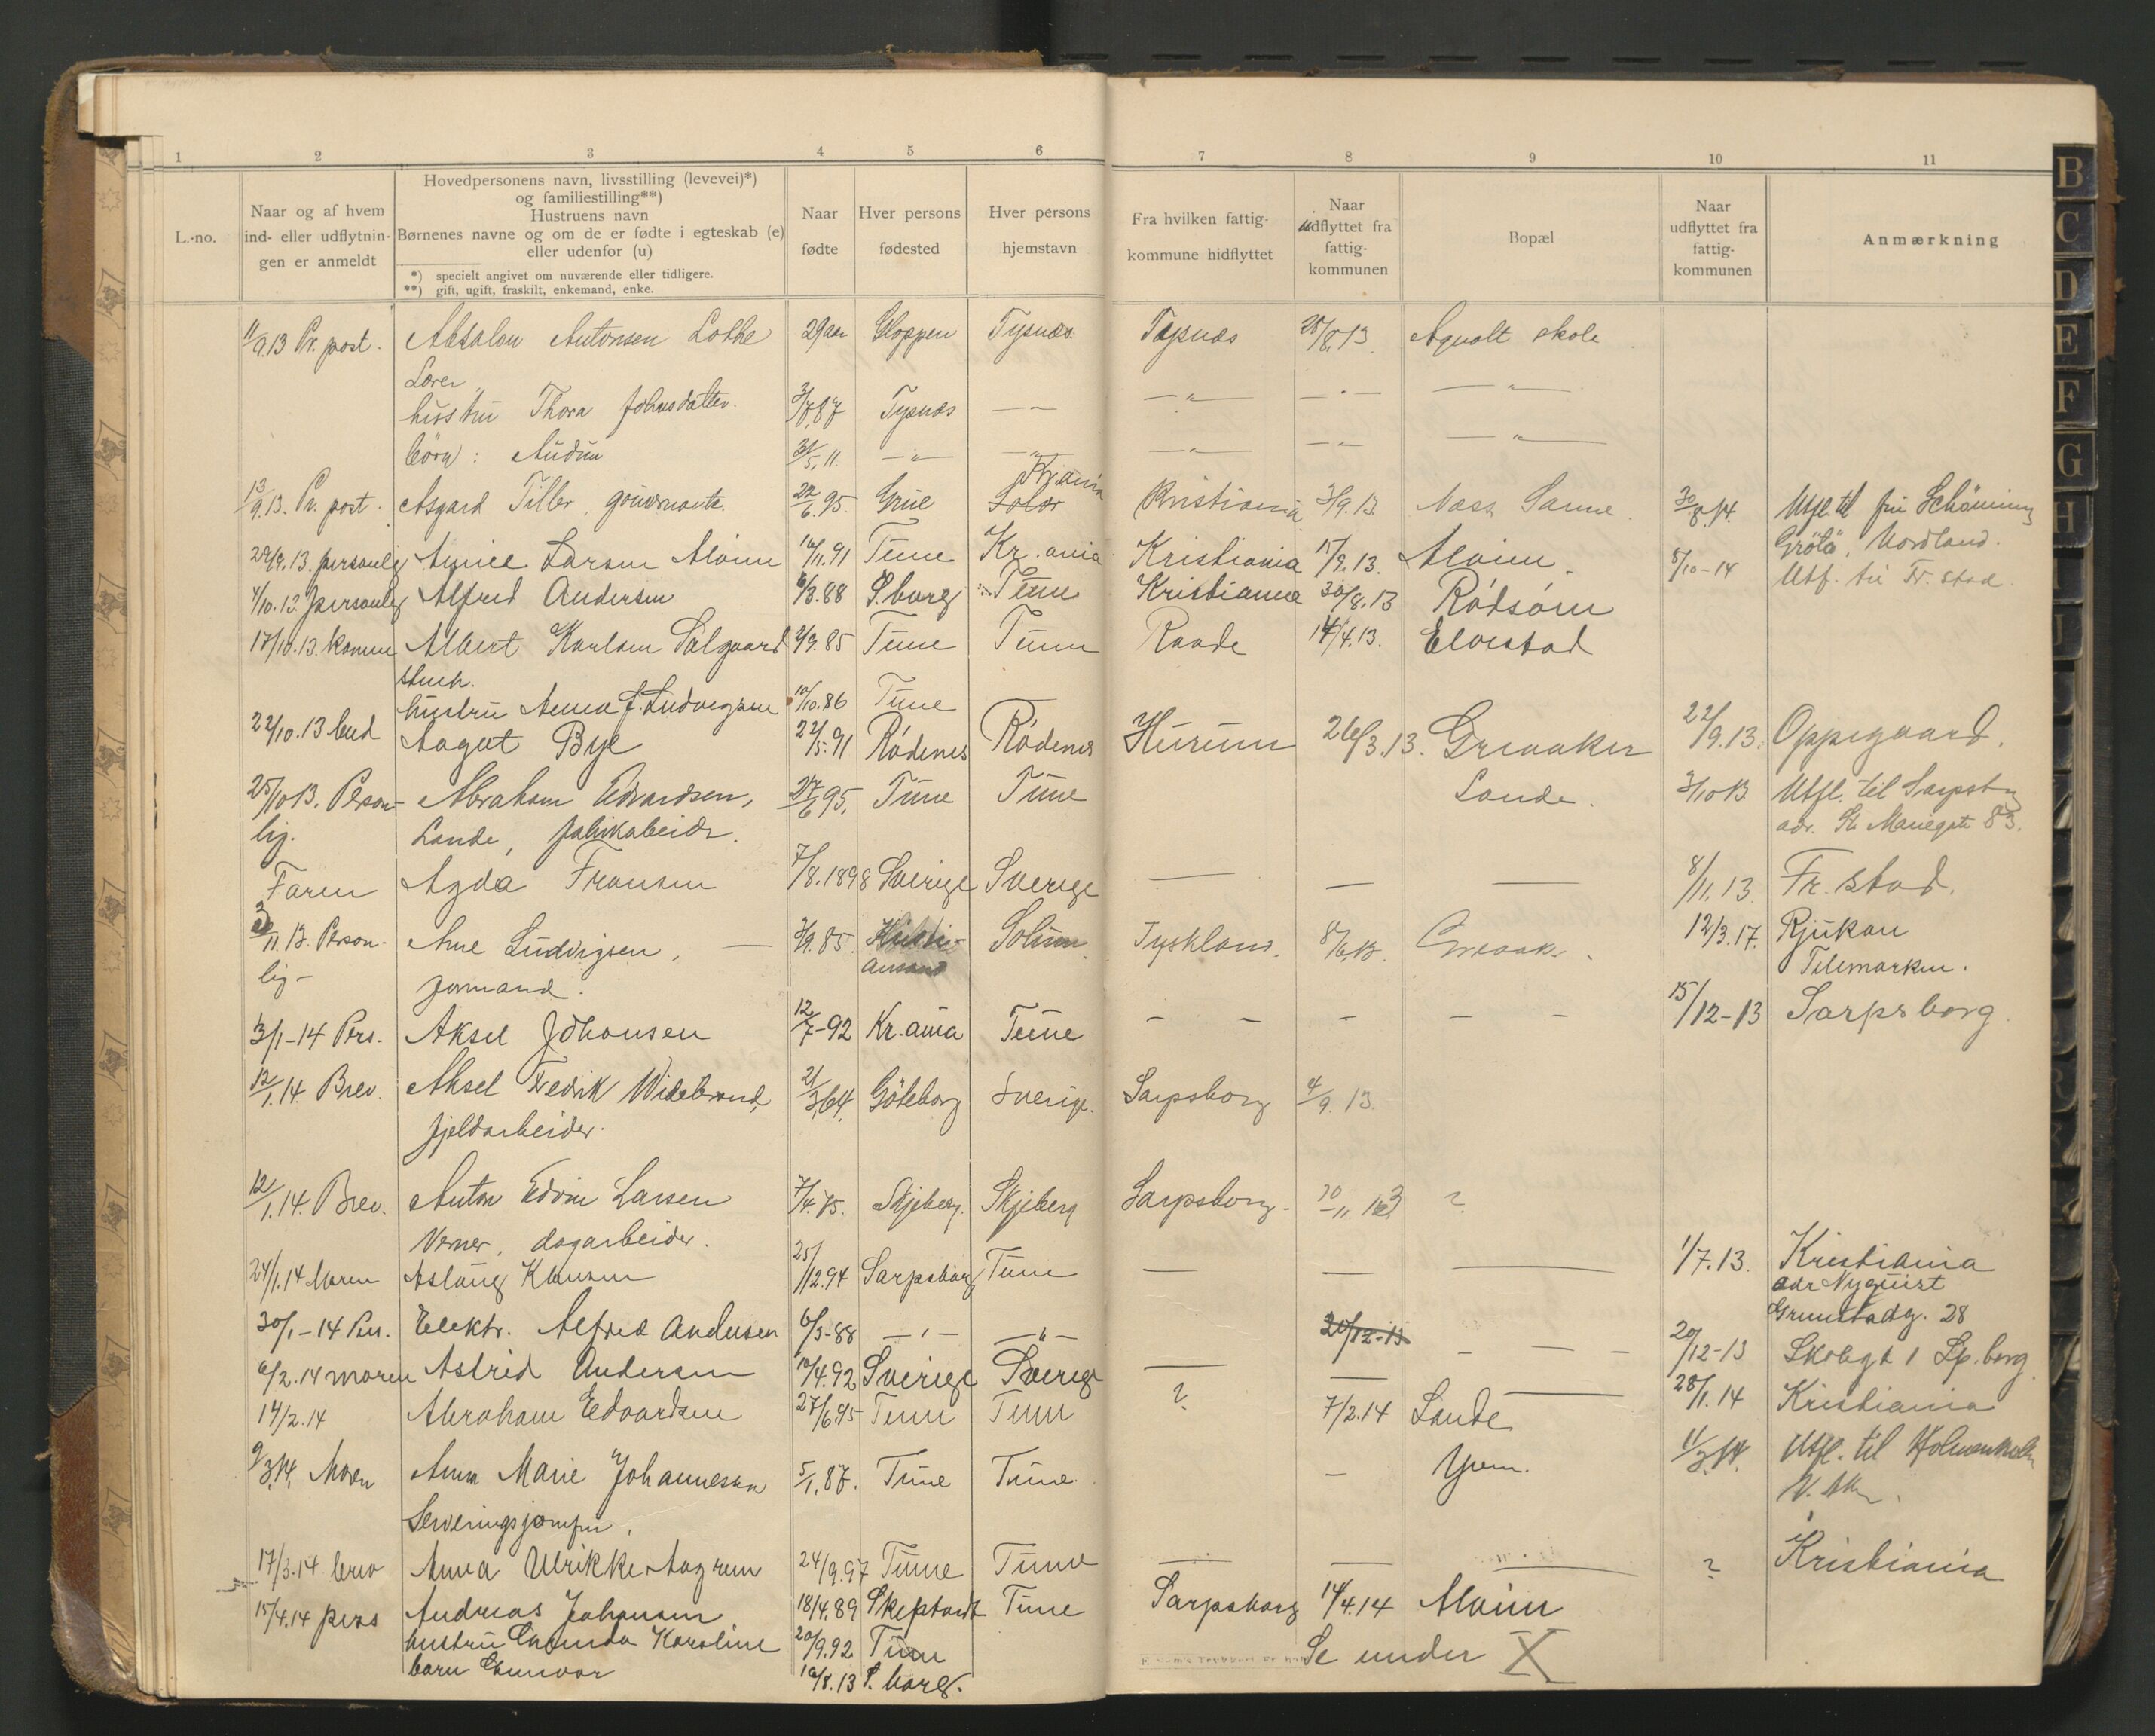 1 2 3 4 5 6 7 8 9 10 11
L.-no.
Naar og af hvem ind- eller udflytnin- gen er anmeldt
Hovedpersonens navn, livsstilling (levevei)*)
og familiestilling**)
Hustruens navn
Børnenes navne og om de er fødte i egteskab (e)
eller udenfor (u)
*) specielt angivet om nuværende eller tidligere.
**) gift, ugift, fraskilt, enkemand, enke.
Naar fødte
Hver persons fødested
Hver persons hjemstavn
Fra hvilken fattig- kommune hidflyttet
Naar udflyttet fra fattig- kommunen
Bopæl
Naar udflyttet fra fattig- kommunen
Anmærkning
11/9.13 Pr. post. Absalon Antonsen Lothe 29 aar Gloppen Tysnæs Tysnæs 28/8.13 Agvalt skole
Lærer
hustru Thora Johnsdatter. 3/7.87 Tysnæs — — — " — — " — — " —
børn : Audun 31/5.11. — " — — " — — " — — " — — " —
13/9.13. Pr. post. Asgard Tiller, guvernante. 22/6.95. Grue Solør Kr.ania Kristiania 3/9.13 Næss Sanne 30/8.14. Utfl. til fru Schønning
Grøtø, Nordland.
29/9.13. personlig Larsen Alvim 16/11.91 Tune Kr.ania Kristiania 15/9.13. Alvim 8/10-14 Utf. til Fr.stad
4/10.13. personlig Alfred Andersen 6/3.88 S.borg Tune Kristiania 30/8.13 Rødsom
17/10.13. komm Albert Karlsen Salgaard 2/9.85 Tune Tune Raade 14/4.13. Elvestad
hustru Anna J. Ludvigsen 10/10.86 Tune
22/10.13 bud Aagot Bye 22/5.91 Rødenes Rødenes Hurum 26/3.13. Greaaker 22/9.13. Oppegaard.
25/10 13. Person- Abraham Edvardsen, 27/6.95. Tune Tune Lande. 3/10 13 Utfl. til Sarpsbg
lig. Lande, fabrikabeidr. adr. St. Mariegt. 83.
Faren Agda Fransen 7/8.1898 Sverige Sverige — — — 8/11.13. Fr.stad.
3/11.13. Person- Arne Ludvigsen, — 3/9.85. Kristi- Solum Tyskland. 8/6.13. Greaak. 12/3.17. Rjukan
lig- formand. ansand Telemarken.
3/1-14 Pers. Aksel Johansen 12/7-92 Kr.ania Tune – – – – – 15/12-13 Sarpsborg.
12/1.14. Brev. Aksel Fedrik Widebrand, 21/3.64. Göteborg Sverige. Sarpsborg 4/9.13.
fjeldarbeider.
12/1.14. Brev. Anton Edvin Larsen 7/4.75. Skjeberg. Skjeberg Sarpsborg- 30/11.13 ?
Verner, dagarbeider.
24/1.14 Moren Aslaug Klausen 25/12.94 Sarpsborg Tune — — — 1/7.13. Kristiania
adr Nyquist
Grunstadg. 28
30/1-14 Pers. Elektr. Alfred Andersen 6/3-88 — " — — " — 20/12-13 – – – 20/12-13 Skolegt 1 Sp.borg.
6/2.14 moren Astrid Andersen 10/4.92 Sverige Sverige — — — 28/1.14 Kristiania
14/2.14 Abraham Edvardsen 27/6.95 Tune Tune ? 7/2.14 Lande
9/3.14. Moren Anna Marie Johannessen 5/1.87. Tune Tune. – Yven. 11/3.14. Utfl. til Holmenkoll
Serveringsjomfru. V. Aker.
17/3.14 brev Anna Ulrikke Aagren 24/9.97 Tune Tune — — — ? Kristiania
15/4.14 pers Andreas Johansen 18/4.89 Skeptvedt Tune Sarpsborg 14/4.14 Alvim
hustru Karoline 20/9.92 Tune Se under X
barn Gunvor 10/8.13 S.borg.
B
C
D
E
F
G
H
J